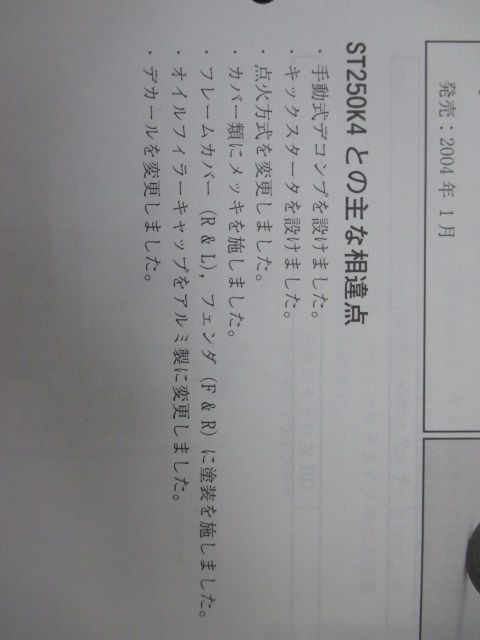 発売：2004 年 1 月
ST250K4 との主な相違点
・手動式デコンプを設けました。
・キックスタータを設けました。
・点火方式を変更しました。
・カバー類にメッキを施しました。
・フレームカバー (R & L), フェンダ (F & R) に塗装を施しました。
・オイルフィラーキャップをアルミ製に変更しました。
・デカールを変更しました。